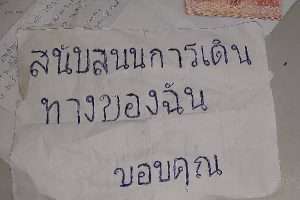 สนับสนนการเดิน
ทางของฉัน
ขอบคุณ